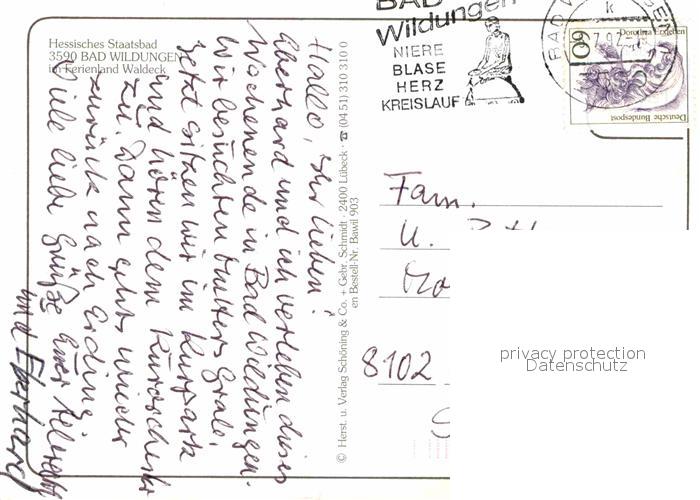 Hessisches Staatsbad
3590 BAD WILDUNGEN
im Ferienland Waldeck
Hallo, ihr Lieben!
Eberhard und ich verleben dieses
Wochenende in Bad Wildungen.
Wir besuchten Mutters Grab.
Jetzt sitzen wir im Kurpark
und hören dem Kurorchester
zu. Dann geht's wieder
zurück nach Erding.
Viele liebe Grüße Eure
und Eberhard
© Herst. u. Verlag Schöning & Co. + Gebr. Schmidt · 2400 Lübeck · ☎ (04 51) 310 310 0
en Bestell-Nr. Bawil 903
BAD
Wildungen
NIERE
BLASE
HERZ
KREISLAUF
BAD W
k
60
Dorothea Erxleben
Deutsche Bundespost
Fam.
U.
8102
privacy protection
Datenschutz